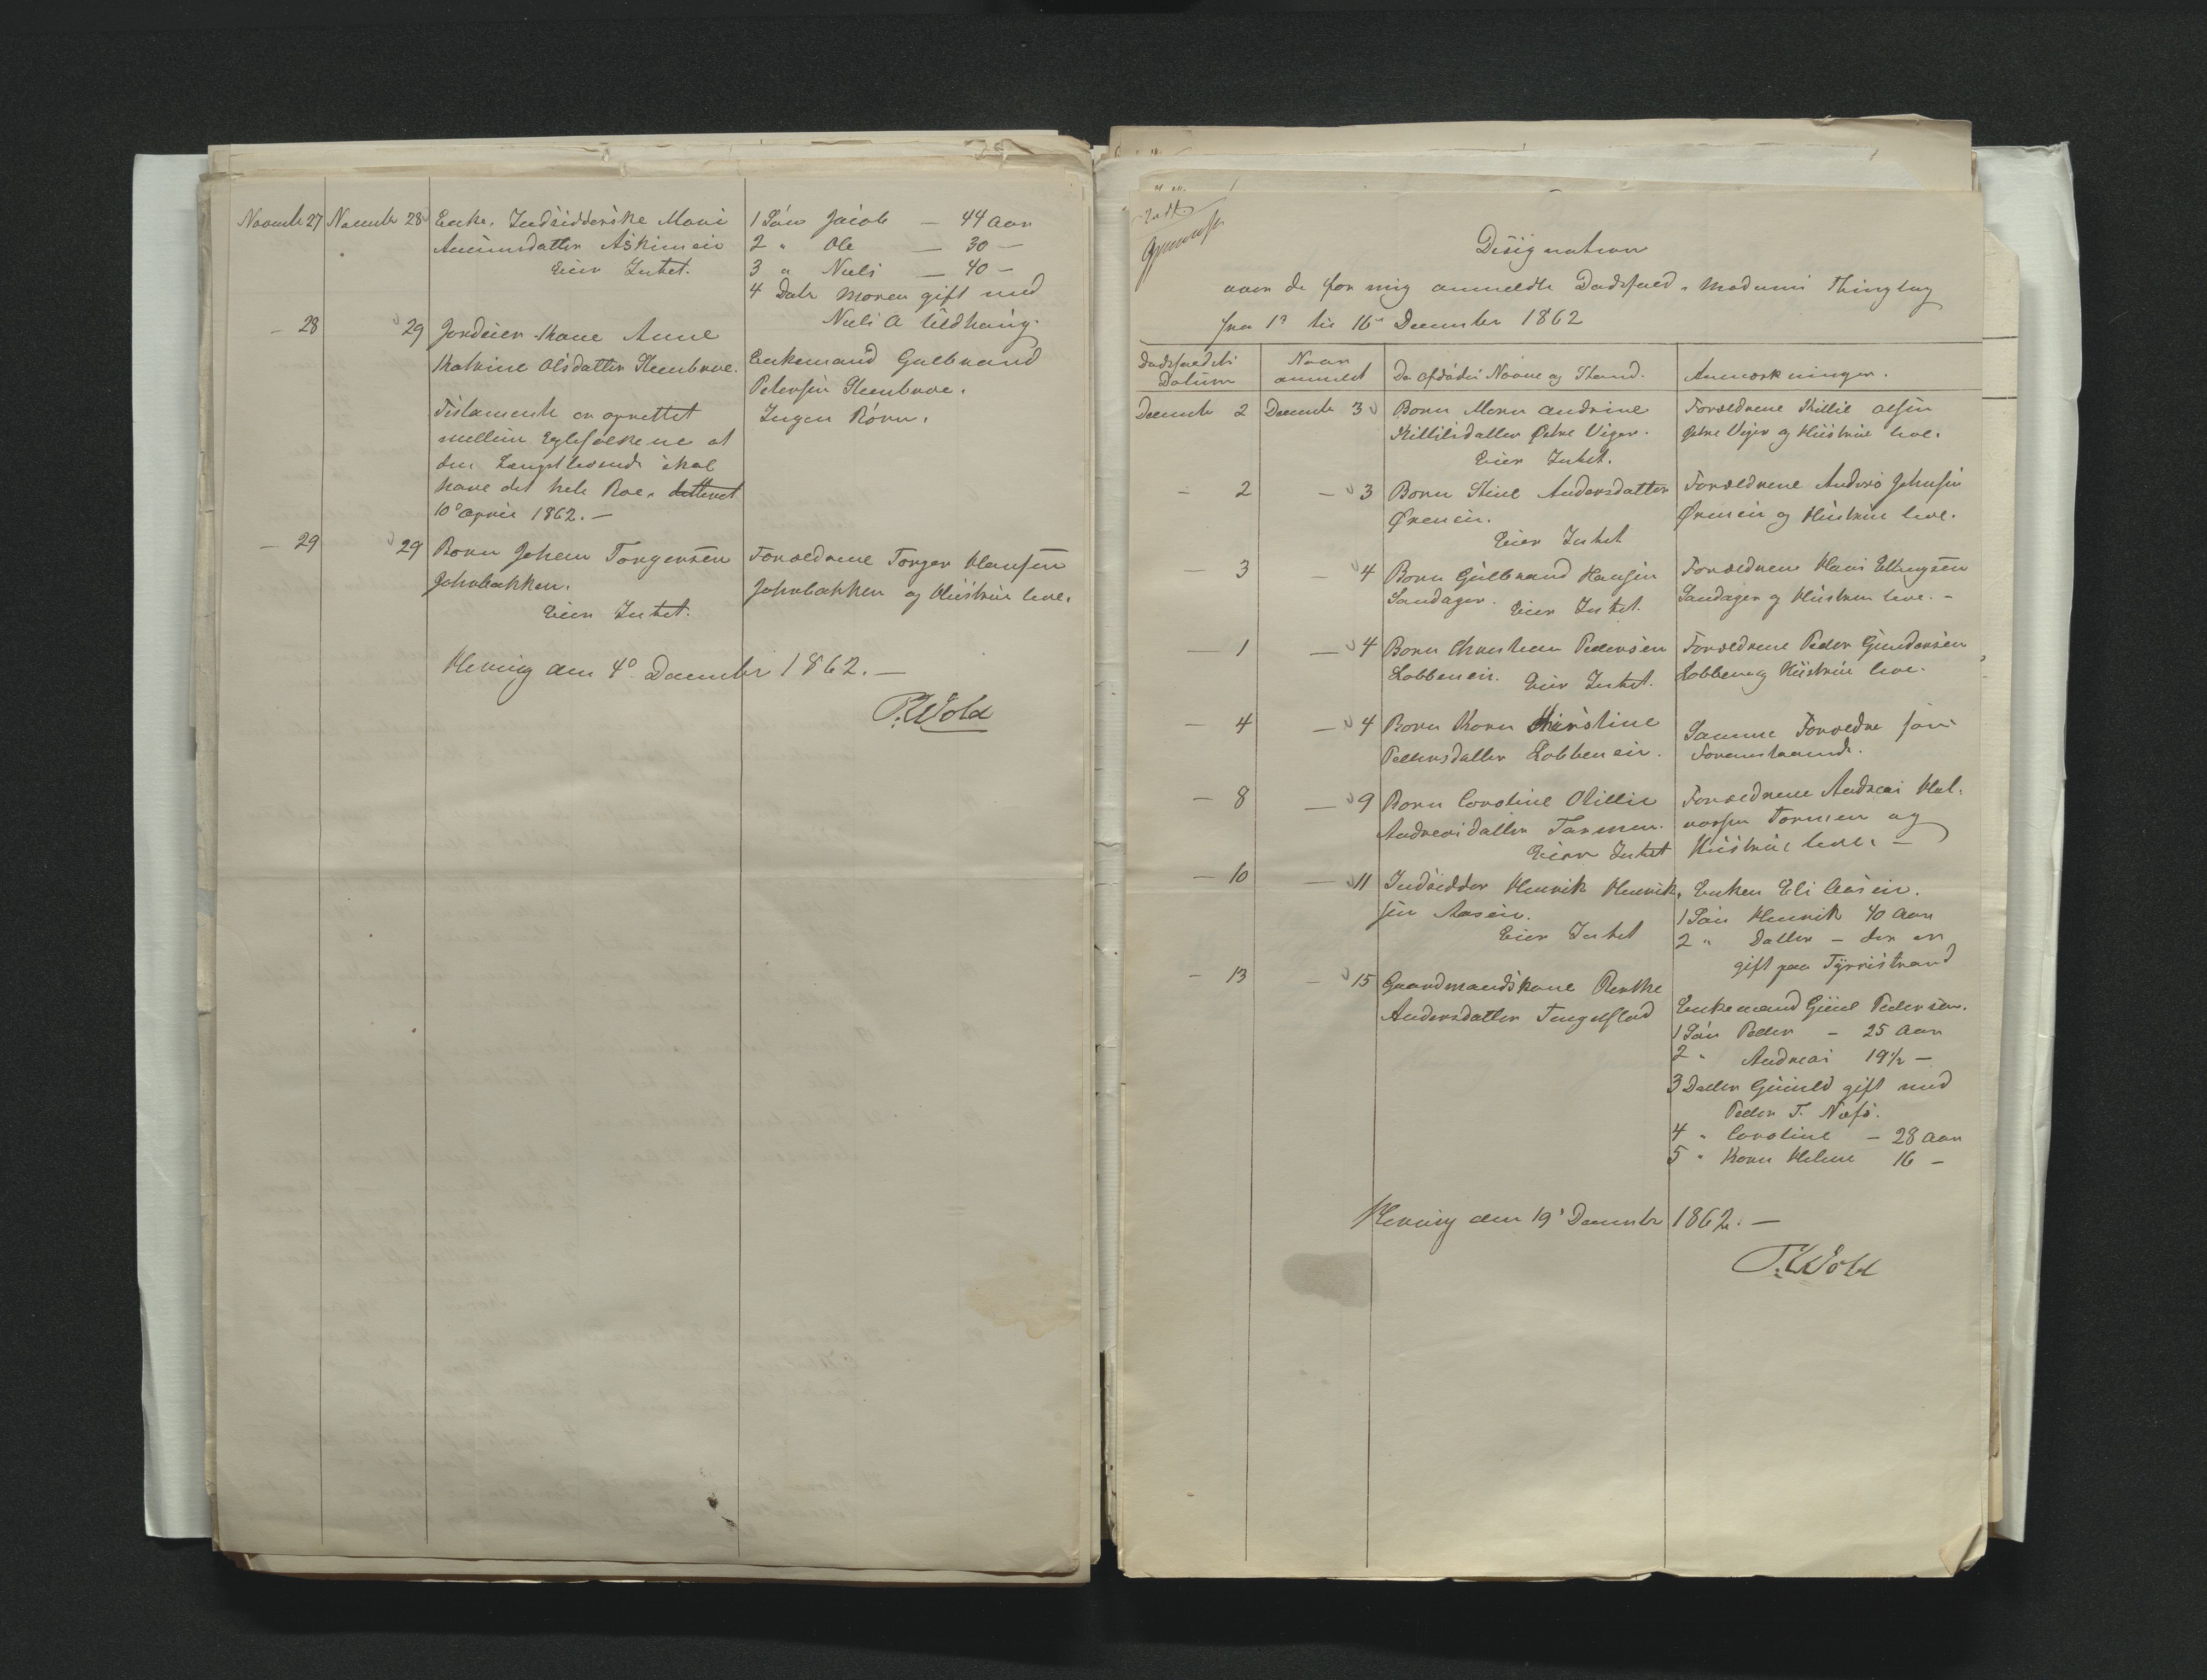 Novembr 27 Novembr 28 Enke. Indsidderske Mari 1 Søn Jacob — 44 Aar
Amundsdatter Askimeie 2 " Ole — 30 —
Eier Intet. 3 " Niels — 40 —
4 Datr Maren gift med
Niels A
— 28 29 Jordeier Kone Anne
Katrine Olsdatter Steenbroe. Enkemand Gulbrand
Petersen Steenbroe.
Testamente er oprettet Ingen Børn.
mellem Egtefolkene at
den Længstlevende skal
have det hele Boe,
10de April 1862. —
— 29 29 Barn Johan Torgersen Forældrene Torger Hansen
Johrbakken. Johrbakken og Hustrue leve.
Eier Intet.
Herrug den 4de December 1862. —
P. Wold
Designation
over de for mig anmeldte Dødsfald i Modums Thinglag
fra 1ste til 16de December 1862
Dødsfaldets Datum
Naar anmeldt
De afdødes Navne og Stand.
Anmærkninger.
Decembr 2 Decembr 3 Barn Maren Andrine Forældrene Killil Olsen
Killilsdatter Østre Viger. Østre Viger og Hustrue leve.
Eier Intet.
— 2 — 3 Barn Stine Andersdatter Forældrene Anders Johnsen
Øreneie. Øreneie og Hustrue leve.
Eier Intet
— 3 — 4 Barn Gulbrand Hansen Forældrene Hans Ellingsen
Sandager. Eier Intet. Sandager og Hustrue leve. —
— 1 — 4 Barn Christian Pedersen Forældrene Peder Gundersen
Lobbeneie. Eier Intet. Lobben og Hustrue leve.
— 4 — 4 Barn Karen Kirstine Samme Forældre som
Pedersdatter Lobbeneie. Foranstaaende.
— 8 — 9 Barn Caroline Otillie Forældrene Andreas Hal-
Andreasdatter Tormen. vorsen Tormen og
Eier Intet Hustrue leve. —
— 10 — 11 Indsidder Henrik Henrik- Enken Eli Aaseie.
sen Aaseie. 1 Søn Henrik 40 Aar
Eier Intet 2 " Datter — der er
gift paa Tyristrand
— 13 — 15 Gaardmandskone Berthe
Andersdatter Tengelstad Enkemand Giul Pedersen.
1 Søn Peder — 25 Aar
2 " Andreas 19½ —
3 Datter Gunild gift med
Peder T. Næss.
4 " Caroline — 28 Aar
5 " Karen Helene 16 —
Herrug den 19de December 1862. —
P. Wold